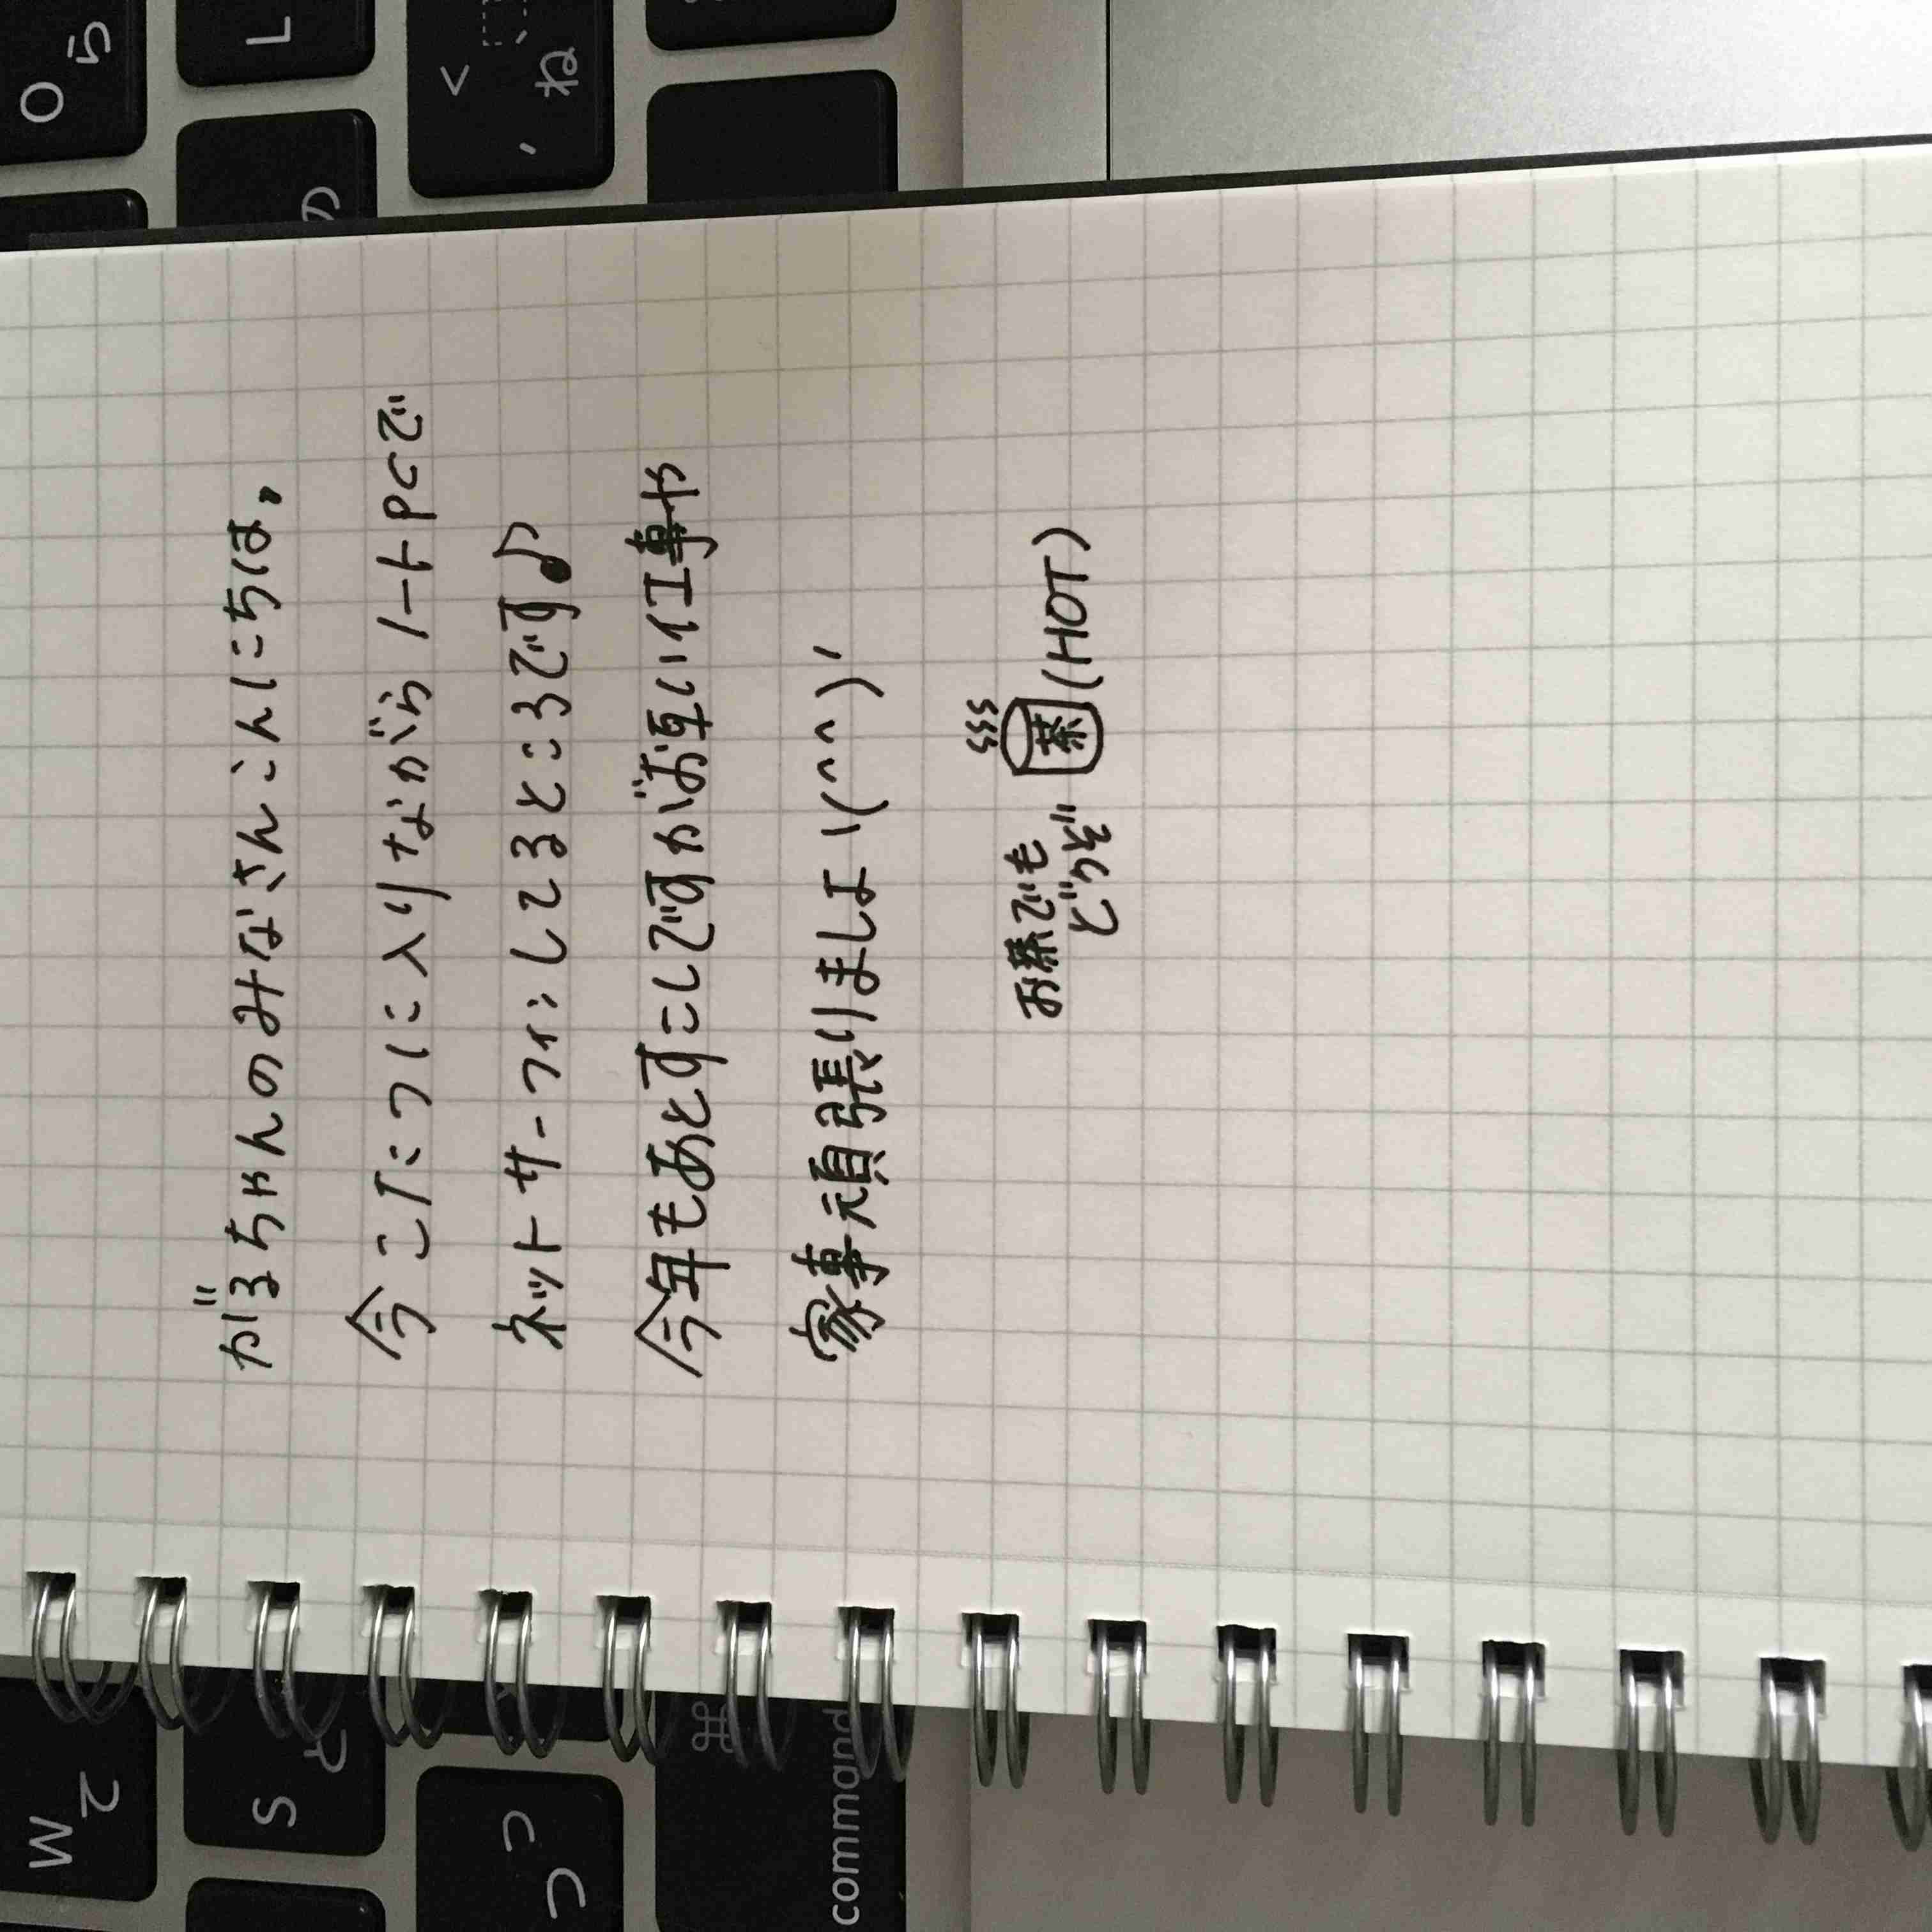 がるちゃんのみなさんこんにちは,
今こたつに入りながらノートPCで
ネットサーフィンしてるところです♪
今年もあとすこしですがお互い仕事や
家事頑張りましょ\(^^)/
お茶でも
どうぞ
茶(HOT)
O
ら
L
<
、
ね
の
W
2
S
C
command
⌘